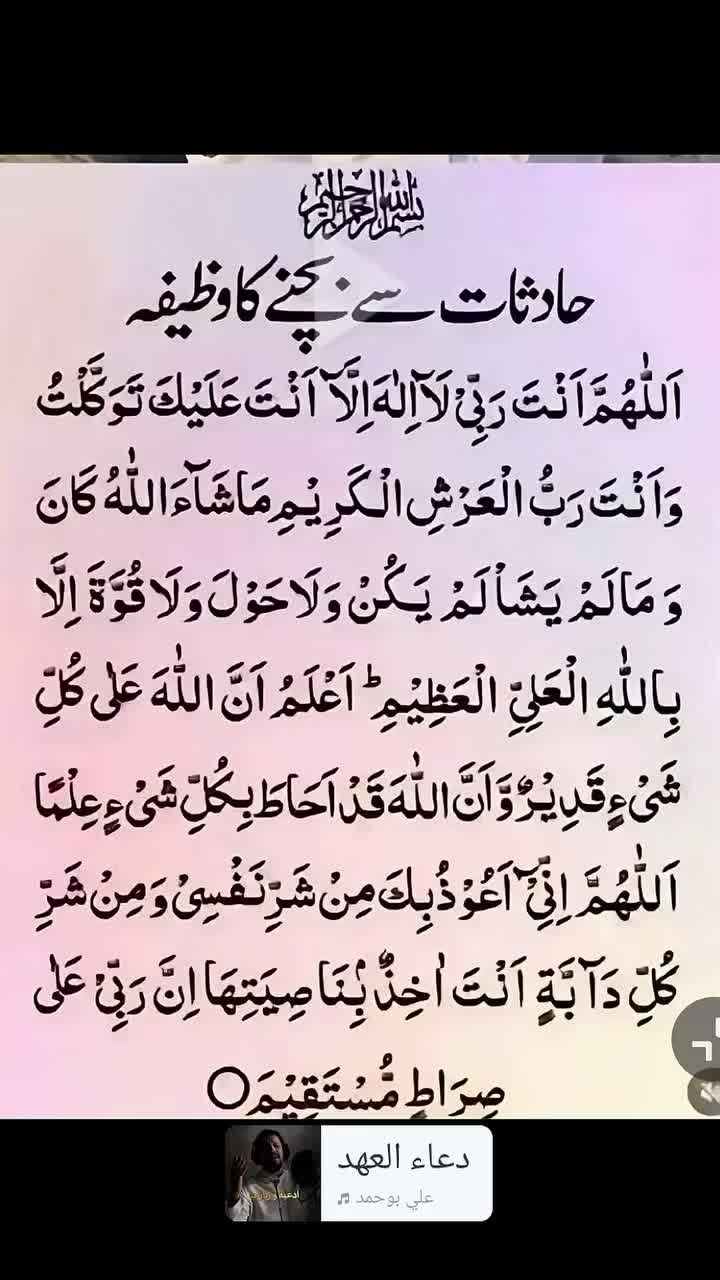 بسم الله الرحمن الرحيم
حادثات سے بچنے کا وظیفہ
اَللّٰهُمَّ اَنْتَ رَبِّیْ لَاۤ اِلٰهَ اِلَّاۤ اَنْتَ عَلَیْكَ تَوَكَّلْتُ
وَاَنْتَ رَبُّ الْعَرْشِ الْكَرِیْمِ مَاشَآءَ اللّٰهُ كَانَ
وَ مَالَمْ یَشَاْ لَمْ یَكُنْ وَلَا حَوْلَ وَلَا قُوَّةَ اِلَّا
بِاللّٰهِ الْعَلِیِّ الْعَظِیْمِ ؕ اَعْلَمُ اَنَّ اللّٰهَ عَلٰی كُلِّ
شَیْءٍ قَدِیْرٌ وَّاَنَّ اللّٰهَ قَدْ اَحَاطَ بِكُلِّ شَیْءٍ عِلْمًا
اَللّٰهُمَّ اِنِّیْۤ اَعُوْذُبِكَ مِنْ شَرِّ نَفْسِیْ وَ مِنْ شَرِّ
كُلِّ دَآ بَّةٍ اَنْتَ اٰخِذٌۢ بِنَاصِیَتِهَا اِنَّ رَبِّیْ عَلٰی
صِرَاطٍ مُّسْتَقِیْمَ○
دعاء العهد
علي بوحمد